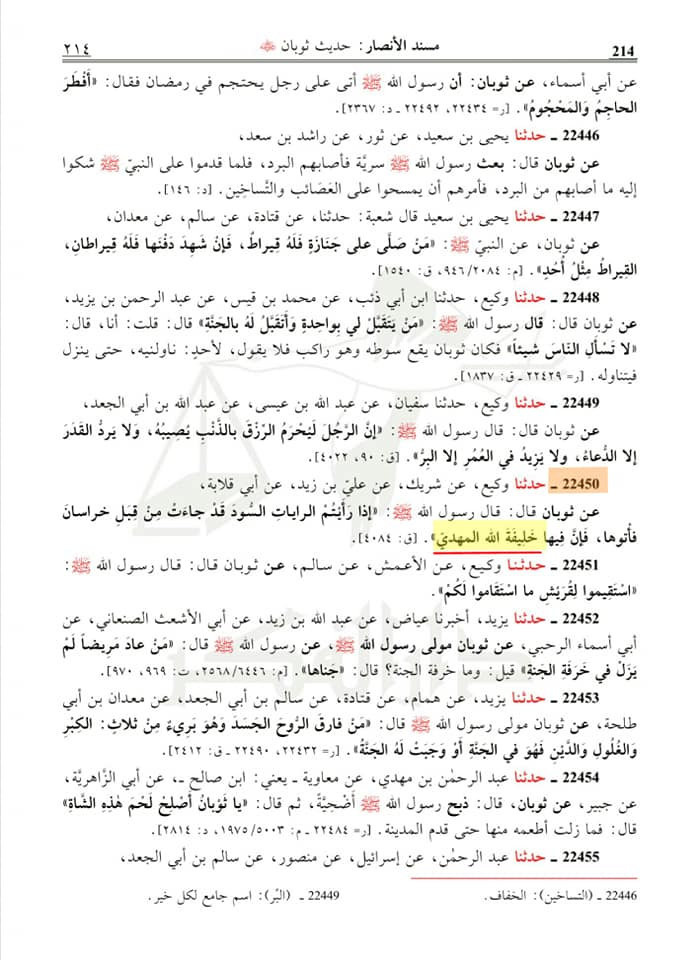 214 مسند الأنصار: حديث ثوبان ﷺ ٢١٤
عن أبي أسماء، عن ثوبان: أن رسول الله ﷺ أتى على رجل يحتجم في رمضان فقال: «أَفْطَرَ
الحاجِمُ وَالمَحْجُومُ». [ر= ٢٢٤٣٤، ٢٢٤٩٢ ـ د: ٢٣٦٧].
22446 ـ حدثنا يحيى بن سعيد، عن ثور، عن راشد بن سعد،
عن ثوبان قال: بعث رسول الله ﷺ سريَّة فأصابهم البرد، فلما قدموا على النبيّ ﷺ شكوا
إليه ما أصابهم من البرد، فأمرهم أن يمسحوا على العَصَائب والتَّساخِين. [د: ١٤٦].
22447 ـ حدثنا يحيى بن سعيد قال شعبة: حدثنا، عن قتادة، عن سالم، عن معدان،
عن ثوبان، عن النبيّ ﷺ: «مَنْ صَلَّى على جَنَازَةٍ فَلَهُ قِيراطٌ، فَإنْ شَهِدَ دَفْنَها فَلَهُ قِيراطان،
القِيراطُ مِثْلُ أُحُدٍ». [م: ٩٤٦/٢٠٨٤، ق: ١٥٤٠].
22448 ـ حدثنا وكيع، حدثنا ابن أبي ذئب، عن محمد بن قيس، عن عبد الرحمن بن يزيد،
عن ثوبان قال: قال رسول الله ﷺ: «مَنْ يَتَقَبَّلُ لي بِواحِدةٍ وَأَتقَبَّلُ لَهُ بالجَنَّةِ» قال: قلت: أنا، قال:
«لا تَسْأَلِ النَّاسَ شيئاً» فكان ثوبان يقع سوطه وهو راكب فلا يقول، لأحدٍ: ناولنيه، حتى ينزل
فيتناوله. [ر= ٢٢٤٢٩ ـ ق: ١٨٣٧].
22449 ـ حدثنا وكيع، حدثنا سفيان، عن عبد الله بن عيسى، عن عبد الله بن أبي الجعد،
عن ثوبان قال: قال رسول الله ﷺ: «إنَّ الرَّجُلَ لَيُحْرَمُ الرِّزْقَ بالذَّنْبِ يُصِيبُهُ، وَلا يَردُّ القَدَرَ
إلا الدُّعاءُ، ولا يَزِيدُ في العُمُرِ إلا البِرُّ». [ق: ٩٠، ٤٠٢٢].
22450 ـ حدثنا وكيع، عن شريك، عن عليّ بن زيد، عن أبي قلابة،
عن ثوبان قال: قال رسول الله ﷺ: «إذا رَأَيْتُمْ الراياتِ السُّودَ قَدْ جاءَتْ مِنْ قِبَلِ خراسانَ
فأْتوها، فَإنَّ فِيها خَلِيفَةَ الله المهديّ». [ق: ٤٠٨٤].
22451 ـ حدثنا وكيع، عن الأعمش، عن سالم، عن ثوبان قال: قال رسول الله ﷺ:
«اسْتَقِيموا لِقُرَيْشٍ ما اسْتَقَاموا لَكُمْ».
22452 ـ حدثنا يزيد، أخبرنا عياض، عن عبد الله بن زيد، عن أبي الأشعث الصنعاني، عن
أبي أسماء الرحبي، عن ثوبان مولى رسول الله ﷺ، عن رسول الله ﷺ قال: «مَنْ عادَ مَرِيضاً لَمْ
يَزَلْ في خَرَفَةِ الجَنةِ» قيل: وما خرفة الجنة؟ قال: «جَناها». [م: ٢٥٦٨/٦٤٤٦، ت: ٩٦٩، ٩٧٠].
22453 ـ حدثنا يزيد، عن همام، عن قتادة، عن سالم بن أبي الجعد، عن معدان بن أبي
طلحة، عن ثوبان مولى رسول الله ﷺ قال: «مَنْ فارقَ الرُّوحَ الجَسَدَ وَهُوَ بَرِيءٌ مِنْ ثلاثٍ: الكِبْرِ
وَالغُلُولِ وَالدَّيْنِ فَهُوَ في الجَنَّةِ أَوْ وَجَبَتْ لَهُ الجَنَّةُ». [ر= ٢٢٤٣٢، ٢٢٤٩٠ ـ ق: ٢٤١٢].
22454 ـ حدثنا عبد الرحمٰن بن مهدي، عن معاوية ـ يعني: ابن صالح ـ، عن أبي الزَّاهريَّة،
عن جبير، عن ثوبان، قال: ذبح رسول الله ﷺ أُضْحِيَّةً، ثم قال: «يا ثَوْبانُ أَصْلِحْ لَحْمَ هٰذِهِ الشَّاةِ»
قال: فما زلت أطعمه منها حتى قدم المدينة. [ر= ٢٢٤٨٤ ـ م: ١٩٧٥/٥٠٠٣، د: ٢٨١٤].
22455 ـ حدثنا عبد الرحمٰن، عن إسرائيل، عن منصور، عن سالم بن أبي الجعد،
22446 ـ (التساخين): الخفاف. 22449 ـ (البُر): اسم جامع لكل خير.